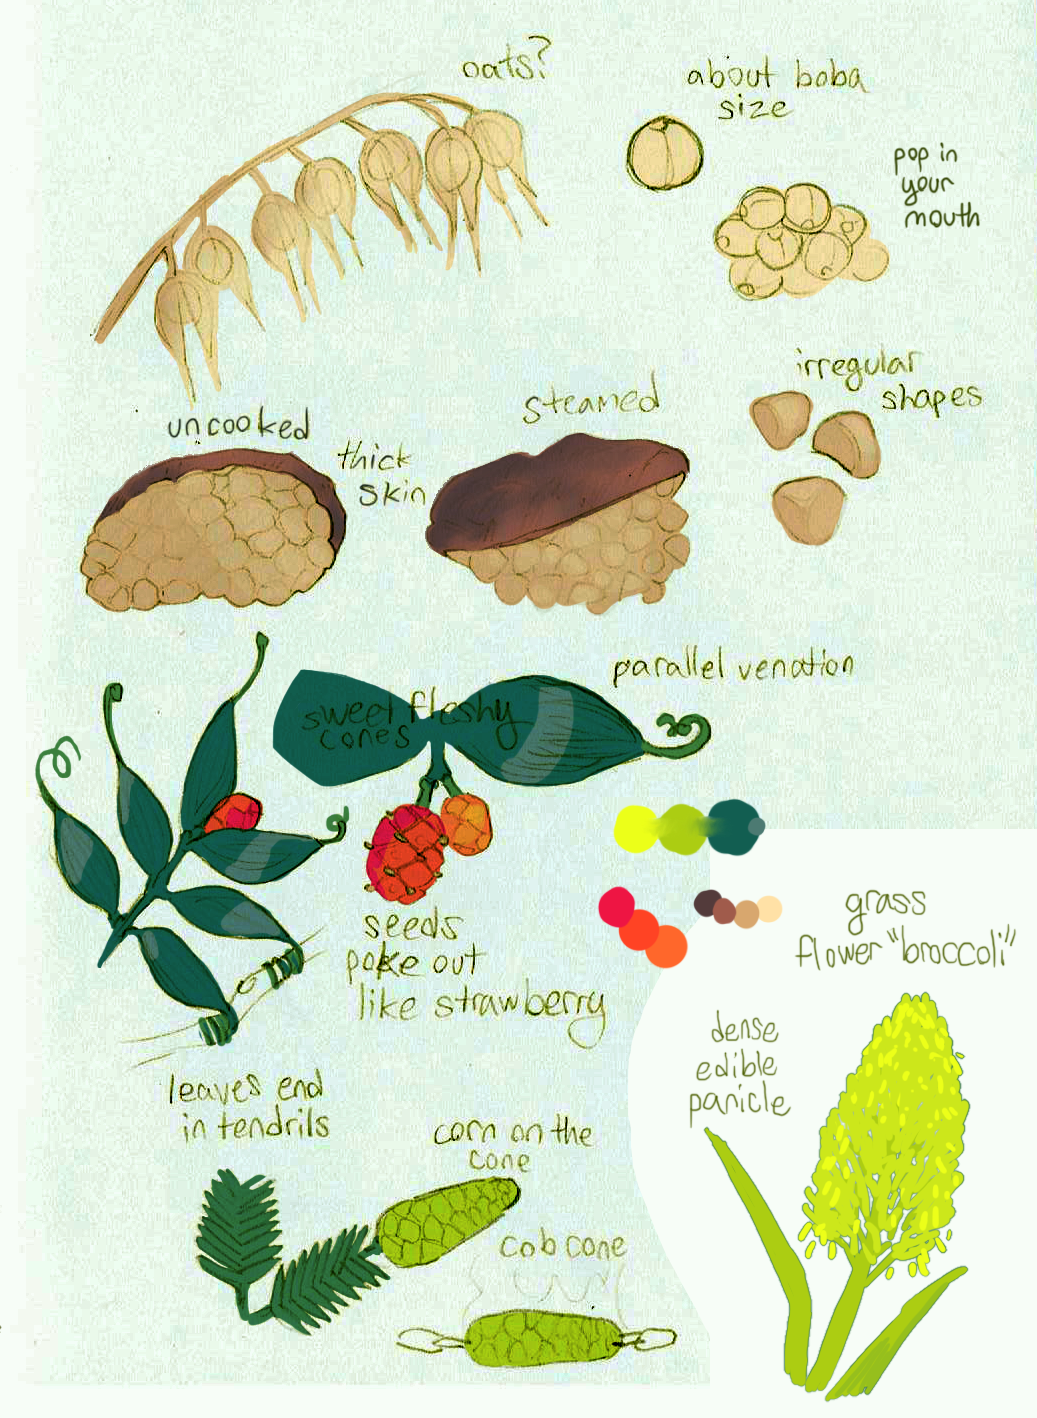 oats?
about boba
size
pop in
your
mouth
irregular
shapes
uncooked
thick
skin
steamed
parallel venation
sweet fleshy
cones
seeds
poke out
like strawberry
leaves end
in tendrils
grass
flower "broccoli"
dense
edible
panicle
corn on the
cone
cob cone